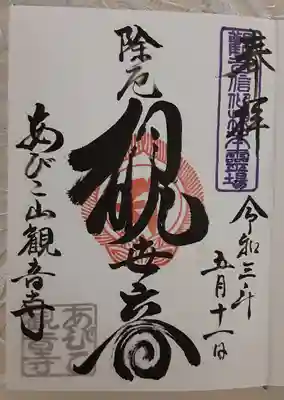 奉拝
観音信仰総本霊場
令和三年
五月十一日
除厄
観世音
あびこ山観音寺
あびこ
観音寺